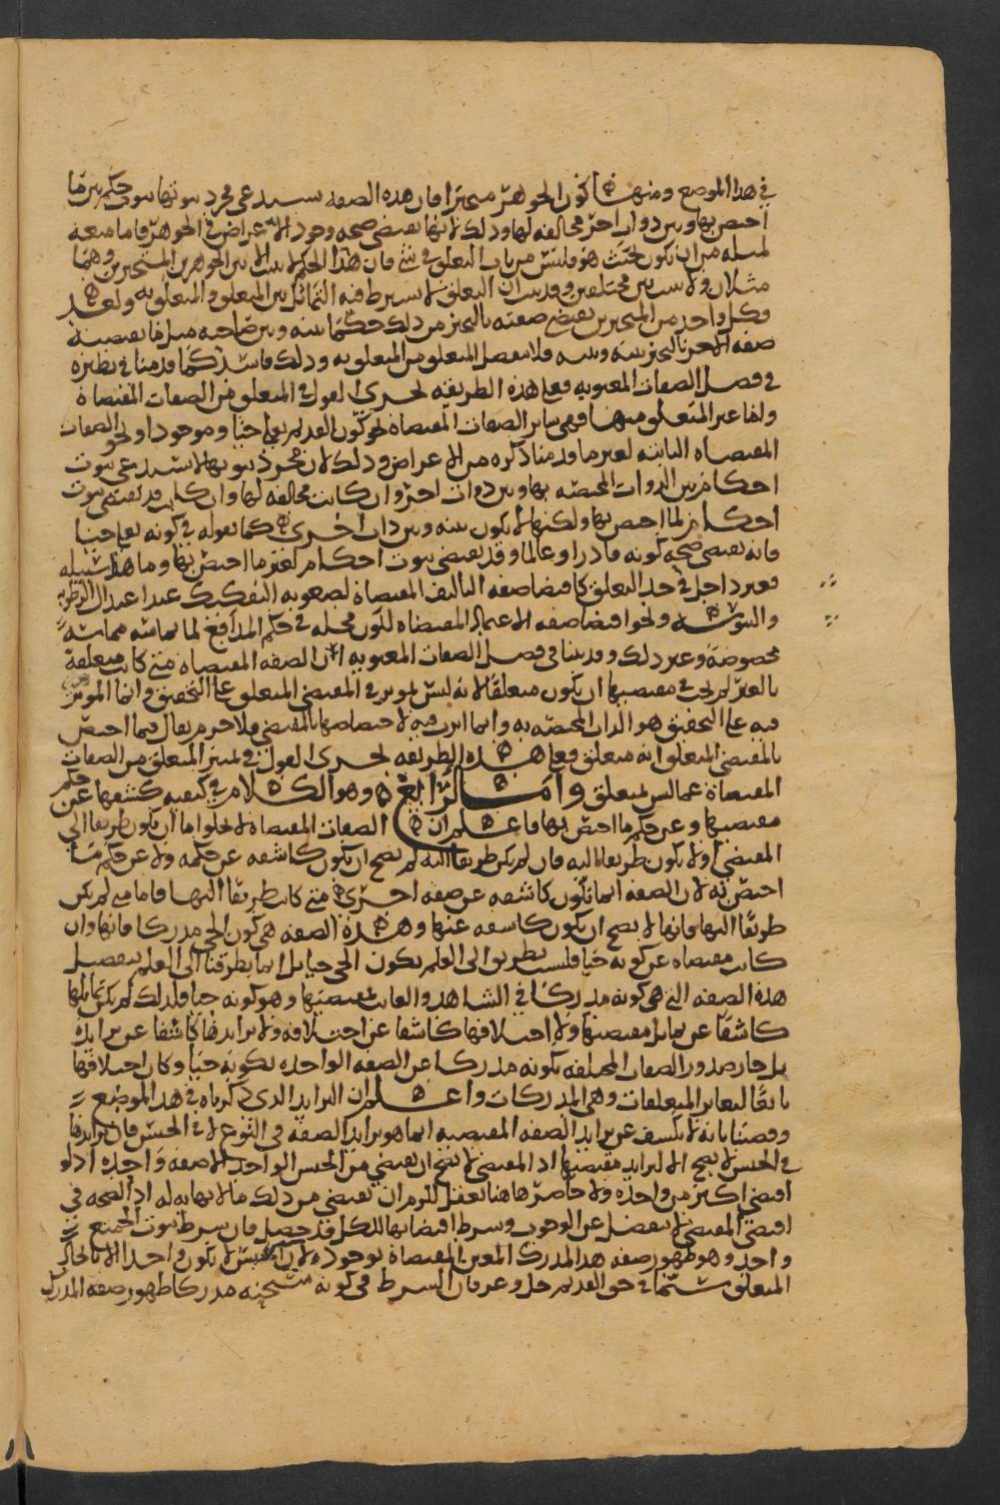 في هذا الموضع ومنها كون الجوهر متحيزا فان هذه الصفه عن مجرد ثبوتها ثبوت حكم بين ما
اختص بها وبين ذوات اخر مخالفه لها وذلك لانها تقتضي صحه وجود الاعراض في الجوهر فاما منعه
لمثله من ان يكون بحيث هو فليس من باب التعلق في شي فان هذا الحكم لا يثبت الا بين الجوهرين المتحيزين وهما
مثلان ولا يثبت بين مختلفين وقد بينا ان التعلق لا يشترط فيه التماثل بين المتعلق والمتعلق به
فكل واحد من المتحيزين تقتضي صفته بالتحيز من ذلك حكما بينه وبين صاحبه مثل ما تقتضيه
صفه الاخر بالتحيز بينه وبينه فلا ينفصل المتعلق من المتعلق به وذلك فاسد كما قدمنا في نظيره
في فصل الصفات المعنويه فعلى هذه الطريقه يجري القول في المتعلق من الصفات المقتضاة
واما غير المتعلق منها فهي سائر الصفات المقتضاة نحو كون القديم تعالى حيا وموجودا ونحو الصفات
المقتضاه الثابته لغير ما قدمنا ذكره من الاعراض وذلك لان مجرد ثبوتها لا عن ثبوت
احكام بين الذوات المختصه بها وبين ذوات اخر وان كانت مخالفه لها وان كانت قد تقتضي ثبوت
احكام لما اختص بها ولكنها لا يكون بينه وبين ذات اخرى كما نقوله في كونه تعالى حيا
فانه تقتضي صحه كونه قادرا وعالما وقد تقتضي ثبوت احكام لغير ما اختص بها وما هذا سبيله
فغير داخل في حد التعلق كاقتضا صفه التاليف المقتضاة لصعوبه التفكيك عند اعتدال الرطوبه
واليبوسه ونحو اقتضا صفه الاعتماد المقتضاه لكون محله في حكم المدافع لما يماسه مماسه
مخصوصة وغير ذلك وقد بينا في فصل الصفات المعنويه ان الصفه المقتضاه متى كانت متعلقة
بالغير لم يجب في مقتضيها ان يكون متعلقا لانه ليس بموثر في المقتضي المتعلق على التحقيق وانما الموثر
فيه على التحقيق هو الذات المختصه به وانما اثرت فيه لاختصاصها بالمقتضي فلا جرم يقال فيما اختص
بالمقتضي المتعلق انه متعلق فعلى هذه الطريقه يجري القول في تمييز المتعلق من الصفات
المقتضاة عما ليس بمتعلق واما الرابع وهو الكلام في كيفيه كشفها عن
مقتضيها وعن حكم ما اختص بها فاعلم ان الصفات المقتضاه لا تخلوا اما ان يكون طريقا الى
المقتضي او لا يكون طريقا اليه فان لم يكن طريقا اليه لم يصح ان يكون كاشفه عن حكمه ولا عن حكم ما
اختص به لان الصفه انما تكون كاشفه عن صفه اخرى متى كانت طريقا اليها فاما متى لم يكن
طريقا اليها فانها لا يصح ان يكون كاشفه عنها وهذه الصفه هي كون الحي مدركا فانها وان
كانت مقتضاه عن كونه حيا فليست بطريق الى العلم بكون الحي حيا بل انما يطرقنا الى العلم بتفصيل
هذه الصفه التي هي كونه مدركا في الشاهد والغائب بمقتضيها وهو كونه حيا فلذلك لم يكن تماثلها
كاشفا عن تماثل مقتضيها ولا اختلافها كاشفا عن اختلافه ولا تزايدها كاشفا عن تزايده
بل جاز صدور الصفات المختلفه بكونه مدركا عن الصفه الواحده بكونه حيا وكان اختلافها
تابعا لتغاير المتعلقات وهي المدركات واعلم ان التزايد الذي ذكرناه في هذا الموضع
وقضينا بانه لا يكشف عن تزايد الصفه المقتضيه انما هو تزايد الصفه في النوع لا في الجنس فان تزايدها
في الجنس لا يصح الا لتزايد مقتضيها اذ المقتضي لا يصح ان يقتضي من الجنس الواحد الا صفه واحده اذ لو
اقتضى اكثر من واحده ولا حاصر ها هنا يعقل للزم ان يقتضي من ذلك ما لا نهايه له اذ الصحه في
اقتضى المقتضي لا ينفصل عن الوجوب وشرط اقتضائها للكل قد حصل فان شرط ثبوت الجميع
واحد وهو ظهور صفه هذا المدرك المعين المقتضاة بوجوده لان الجنس لا يكون واحدا الا باتحاد
المتعلق في حق القديم جل وعز فان الشرط في كونه مدركا ظهور صفه المدرك